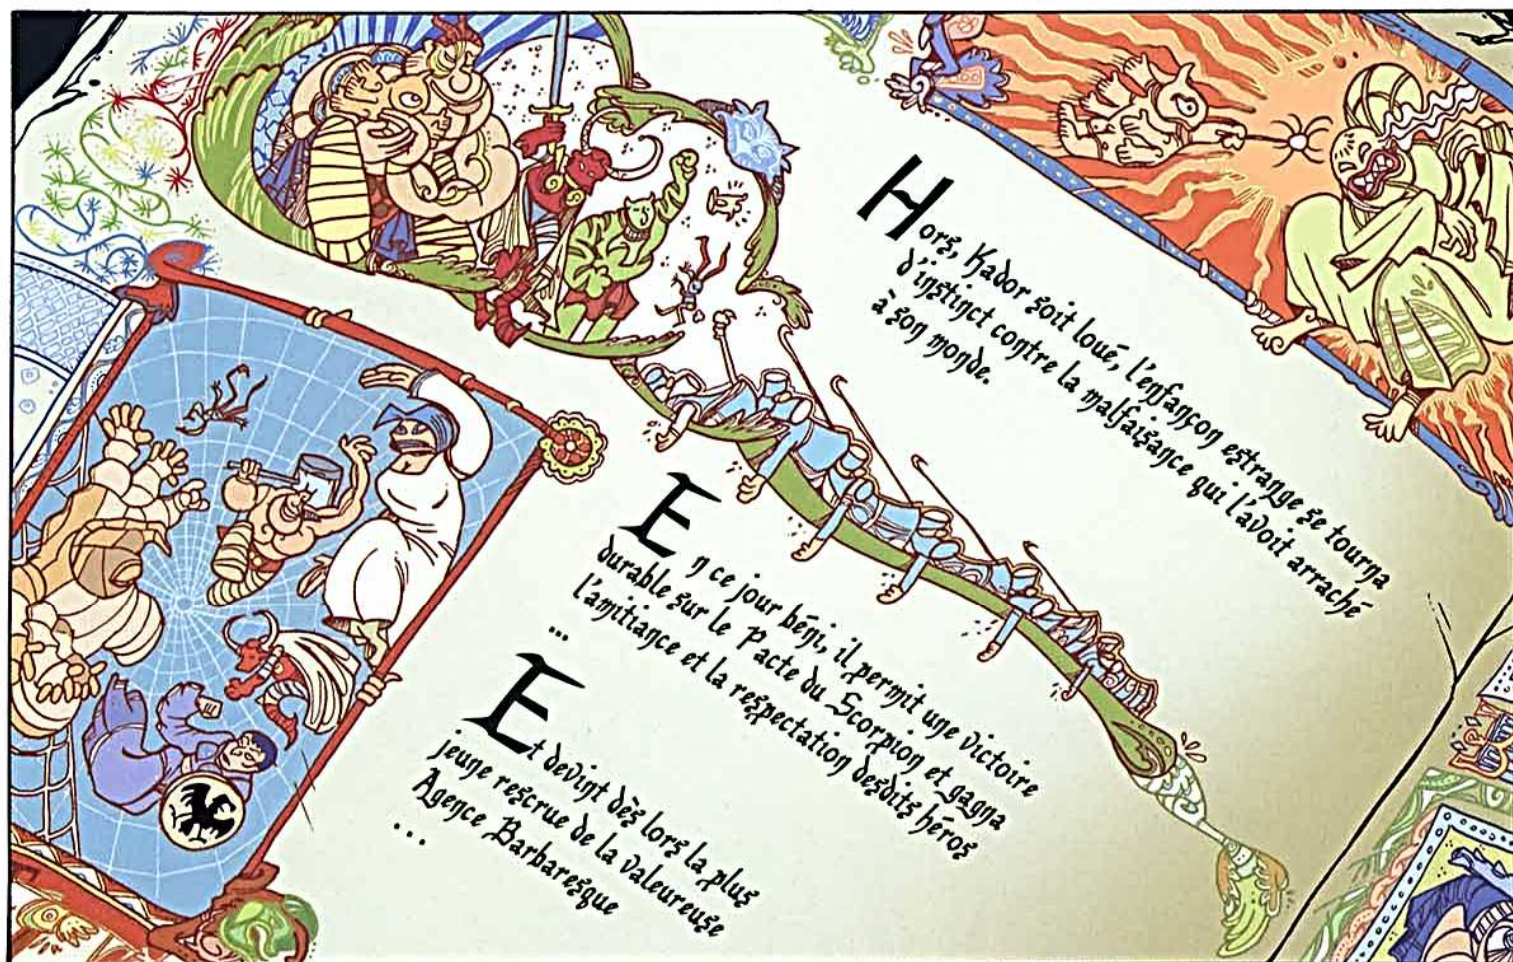 Hors, Kador soit loué, l'enfançon estrange se tourna
d'instinct contre la malfaisance qui l'avoit arraché
à son monde.
En ce jour béni, il permit une victoire
durable sur le Pacte du Scorpion et gagna
l'amitiance et la respectation desdits héros
...
Et devint dès lors la plus
jeune rescrue de la valeureuse
Agence Barbaresque
...